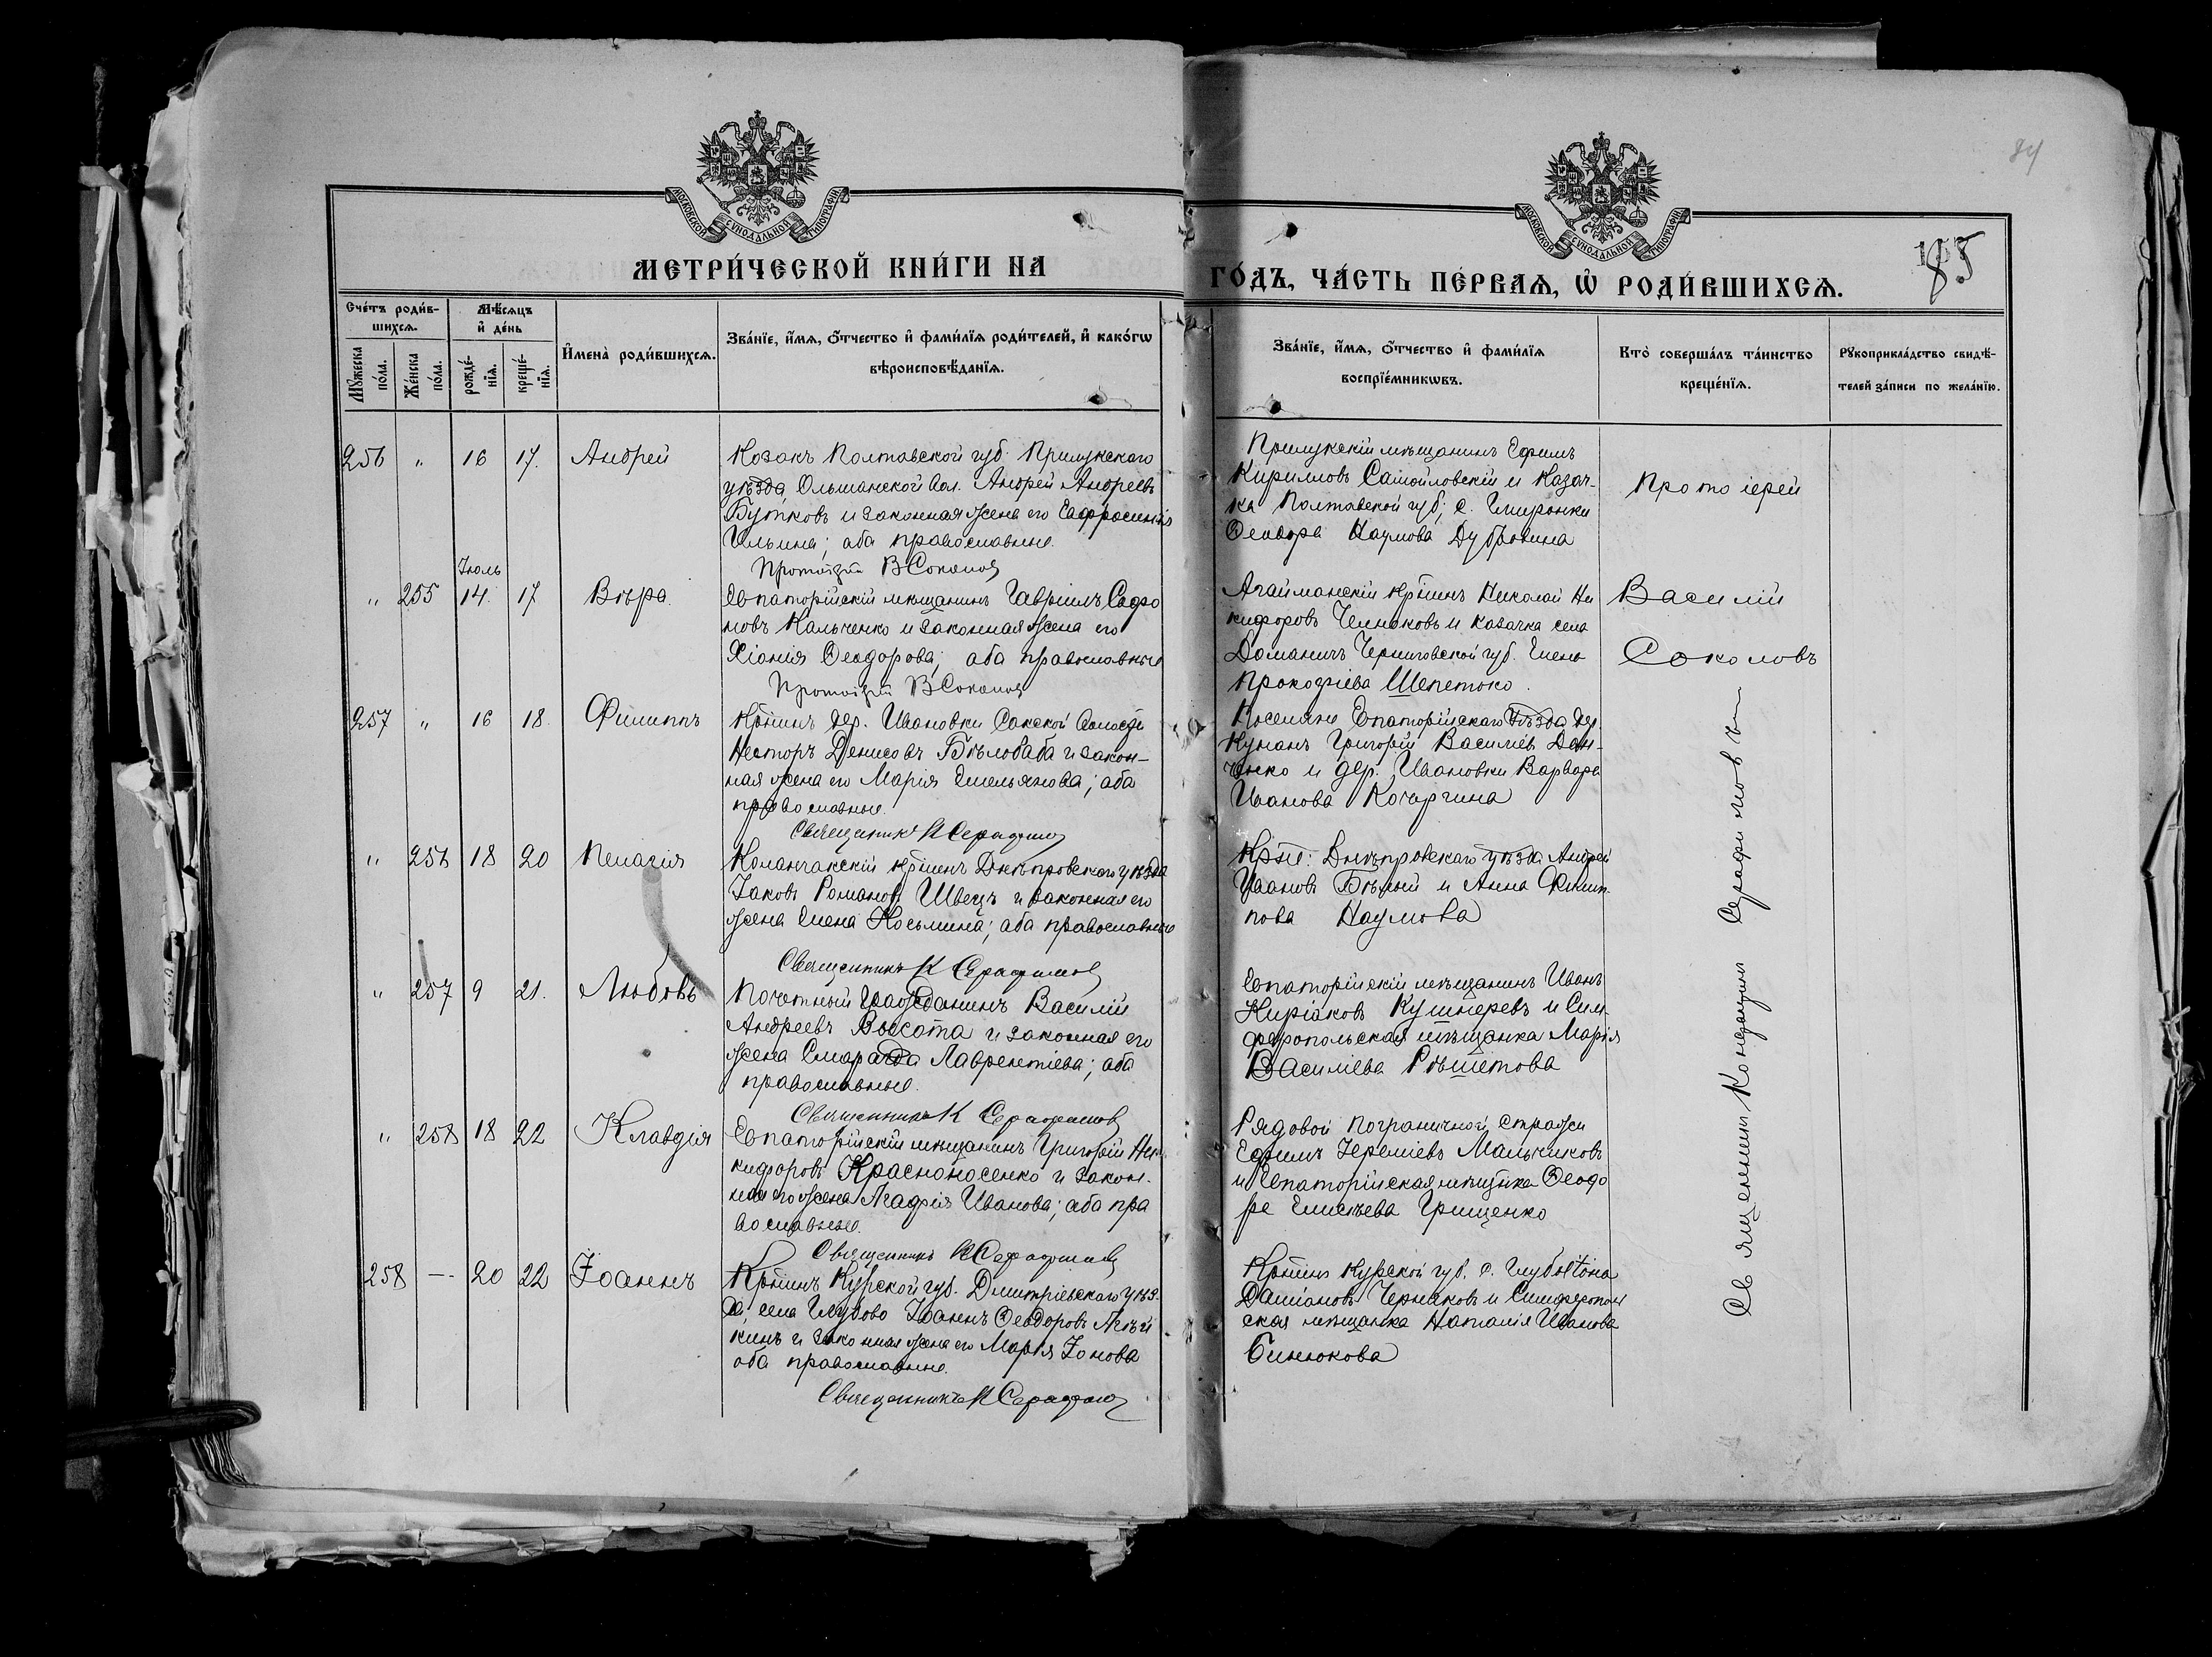 84
МОСКОВСКОЙ СѴНОДАЛЬНОЙ ТИПОГРАФІИ
МОСКОВСКОЙ СѴНОДАЛЬНОЙ ТИПОГРАФІИ
МЕТРИ́ЧЕСКОЙ КНИ́ГИ НА
ГО́ДЪ, ЧА́СТЬ ПЕ́РВАѦ, Ѡ҆ РОДИ́ВШИХСѦ.
85
Сче́тъ роди́в-
шихсѧ.
Мѣ́сѧцъ
и҆ де́нь
Мꙋ́жеска
по́ла.
Же́нска
по́ла.
рожде́-
нїѧ.
креще́-
нїѧ.
И҆мена̀ роди́вшихсѧ.
Зва́нїе, и҆́мѧ, ѻ҆́тчество и҆ фами́лїѧ роди́телей, и҆ како́гѡ
вѣроисповѣ́данїѧ.
Зва́нїе, и҆́мѧ, ѻ҆́тчество и҆ фами́лїѧ
воспрїе́мникѡвъ.
Кто̀ соверша́лъ та́инство
креще́нїѧ.
Рꙋкоприкла́дство свидѣ́-
телей за́писи по жела́нїю.
256 " 16 17. Андрей
Козакъ Полтавской губ. Прилукскаго
уѣзда, Ольшанской вол. Андрей Андреевъ
Бутковъ и законная жена его Евфросинія
Ильина; оба православные.
Протоіерей В Соколов
Прилукскій мѣщанинъ Ефимъ
Кирилловъ Самойловскій и Козач-
ка Полтавской губ; с.
Ѳеодора Наумова Дубровина
Протоіерей
Іюль
" 255 14. 17 Вѣра.
Евпаторійскій мѣщанинъ Гавріилъ Сафро
новъ Кальченко и законная жена его
Хіонія Ѳеодорова; оба православные
Протоіерей В Соколов
Агайманскій кр-нинъ Николай Ни
кифоровъ Челноковъ и казачка села
Доманичъ Черниговской губ. Елена
Прокофіева Шепетько.
Василій
Соколовъ
257 " 16 18. Филиппъ
Кр-нинъ дер. Ивановки Сакской волости
Несторъ Денисовъ Бѣлобаба и закон-
ная жена его Марія Емельянова; оба
православные.
Священникъ К Серафимов
Поселяне Евпаторійскаго уѣзда дер.
Григорій Васильевъ Дан-
ченко и дер. Ивановки Варвара
Иванова Кочергина
" 256 18 20 Пелагія
Каланчакскій кр-нинъ Днѣпровскаго уѣзда
Іаковъ Романовъ Швецъ и законная его
жена Елена Косьмина; оба православные
Священникъ К Серафимов
Кр-не: Днѣпровскаго уѣзда Андрей
Ивановъ Бѣлый и Анна Филип-
пова Наумова
" 257 9 21. Любовь
Почетный Гражданинъ Василій
Андреевъ Высота и законная его
жена Смарагда Лаврентіева; оба
православные.
Священникъ К Серафимов
Евпаторійскій мѣщанинъ Иванъ
Киріаковъ Кушнеревъ и Сим-
феропольская мѣщанка Марія
Васильева Рѣшетова
" 258 18 22 Клавдія
Евпаторійскій мѣщанинъ Григорій Ни-
кифоровъ Красноносенко и закон-
ная его жена Агафія Иванова; оба пра
вославные.
Священникъ К Серафимов
Рядовой Пограничной Стражи
Ефимъ Іереміевъ Мальчиковъ
и Евпаторійская мѣщ-нка Ѳеодо
ра Елисѣева Грищенко
258 — 20 22 Іоаннъ
Кр-нинъ Курской губ. Дмитріевскаго уѣз-
да, села Глубово Іоаннъ Ѳеодоровъ
кинъ и законная жена его Марія Іонова
оба православные.
Священникъ К Серафимов
Кр-нинъ Курской губ. с.
Даміановъ Черняковъ и Симферополь
ская мѣщанка Наталія Иванова
Бинюкова
Священникъ Кондратій Серафимовъ